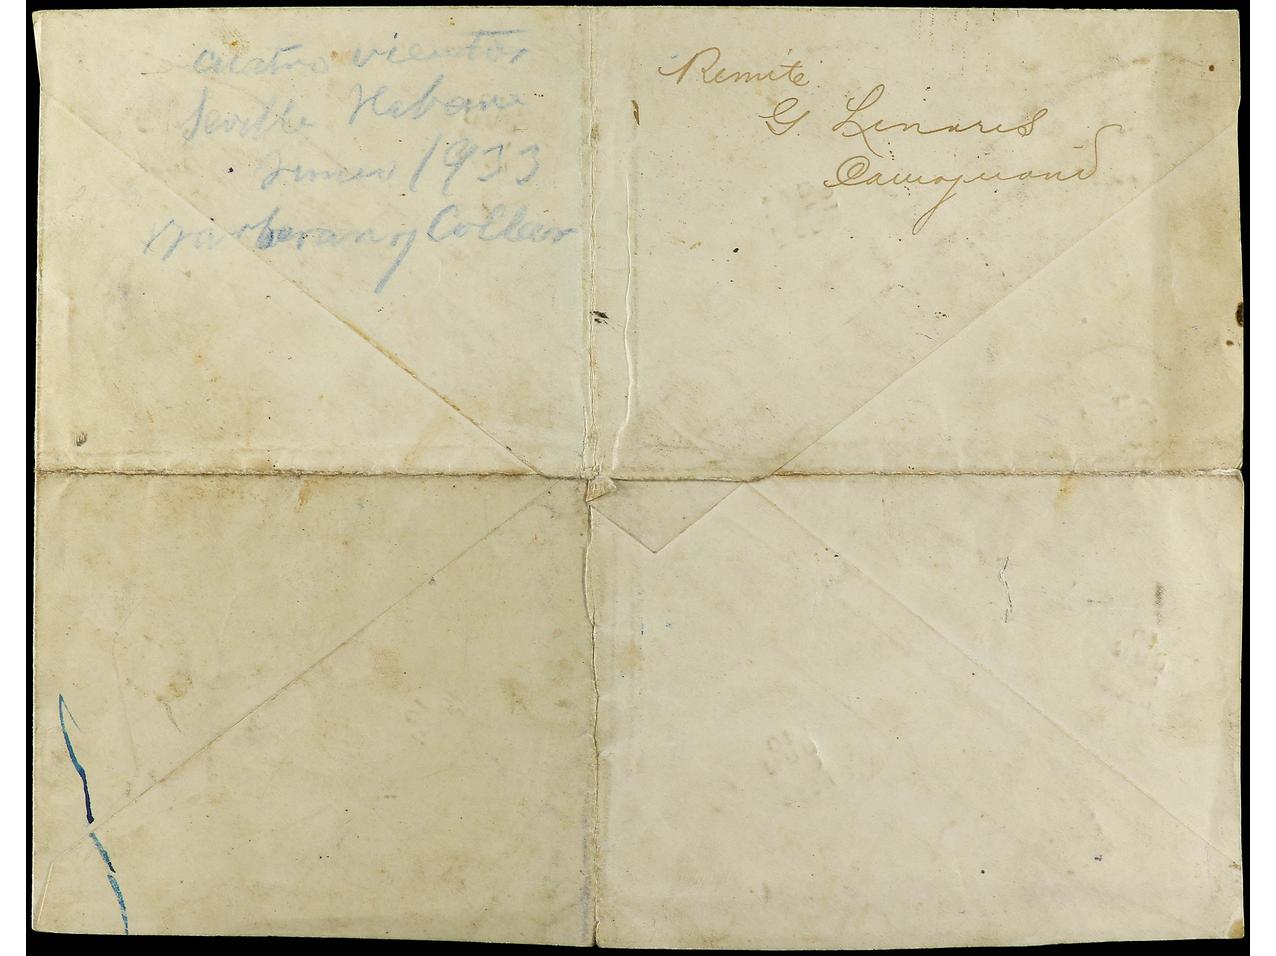 cuatro vientos
Sevilla Habana
Junio 1933
Barberan y Collar
Remite
G Linares